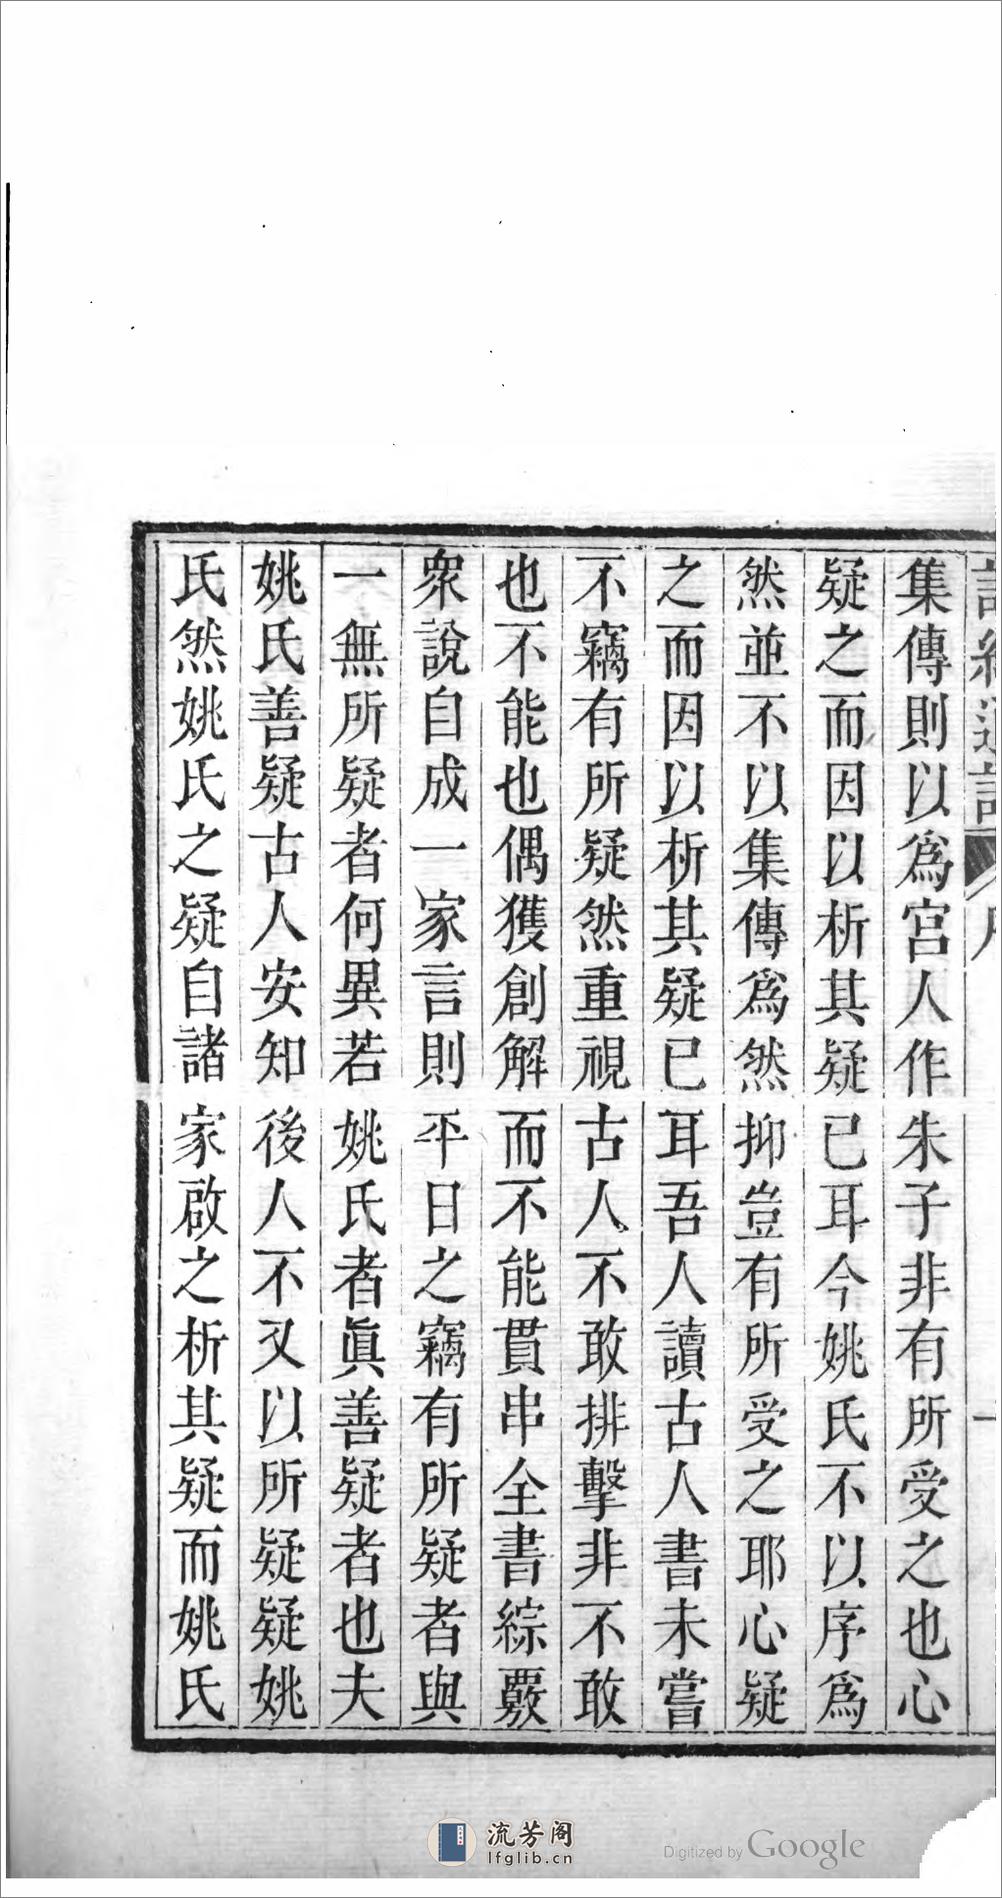 詩經通論 序 一
集傳則以爲宮人作朱子非有所受之也心
疑之而因以析其疑已耳今姚氏不以序爲
然並不以集傳爲然抑豈有所受之耶心疑
之而因以析其疑已耳吾人讀古人書未嘗
不竊有所疑然重視古人不敢排擊非不敢
也不能也偶獲創解而不能貫串全書綜覈
衆說自成一家言則平日之竊有所疑者與
一無所疑者何異若姚氏者眞善疑者也夫
姚氏善疑古人安知後人不又以所疑疑姚
氏然姚氏之疑自諸家啟之析其疑而姚氏
流芳阁
lfglib.cn
Digitized by Google